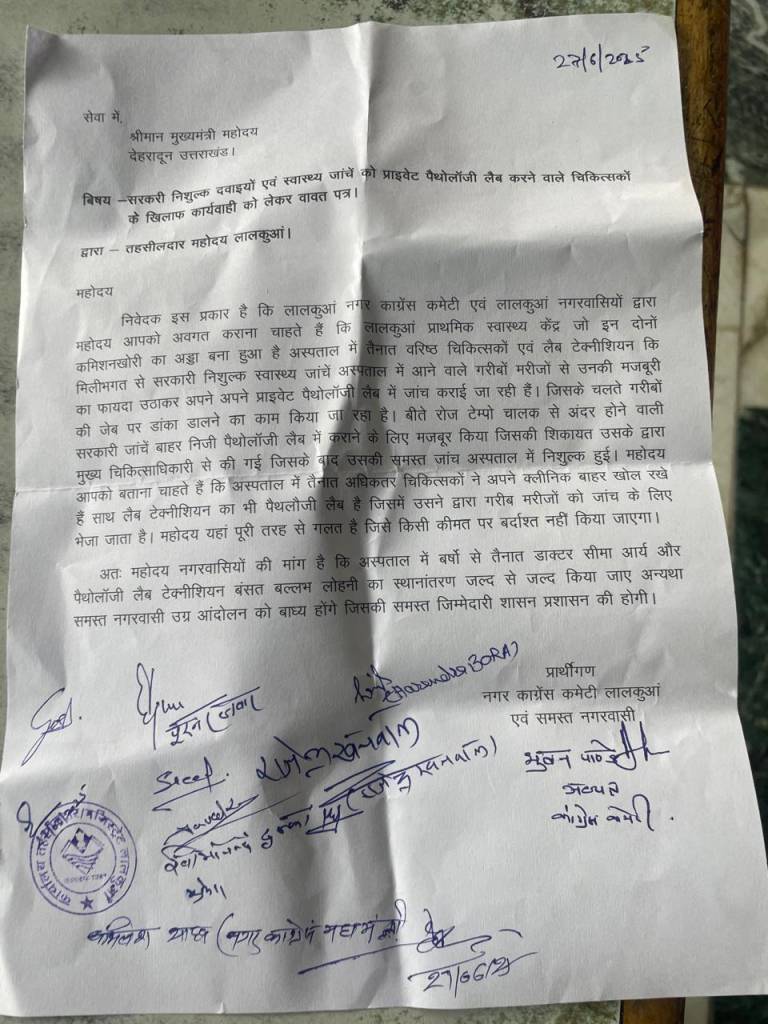 27/6/2025
सेवा में,
श्रीमान मुख्यमंत्री महोदय
देहरादून उत्तराखंड।
बिषय –सरकरी निशुल्क दवाइयों एवं स्वास्थ्य जांचें को प्राइवेट पैथोलॉजी लैब करने वाले चिकित्सकों
के खिलाफ कार्यवाही को लेकर वावत पत्र।
द्वारा – तहसीलदार महोदय लालकुआं।
महोदय
निवेदक इस प्रकार है कि लालकुआं नगर काग्रेंस कमेटी एवं लालकुआं नगरवासियों द्वारा
महोदय आपको अवगत कराना चाहते हैं कि लालकुआं प्राथमिक स्वास्थ्य केंद्र जो इन दोनों
कमिशनखोरी का अड्डा बना हुआ है अस्पताल में तैनात वरिष्ठ चिकित्सकों एवं लैब टेक्नीशियन कि
मिलीभगत से सरकारी निशुल्क स्वास्थ्य जांचें अस्पताल में आने वाले गरीबों मरीजो से उनकी मजबूरी
का फायदा उठाकर अपने अपने प्राइवेट पैथोलॉजी लैब में जांच कराई जा रही हैं। जिसके चलते गरीबों
की जेब पर डांका डालने का काम किया जा रहा है। बीते रोज टेम्पो चालक से अंदर होने वाली
सरकारी जांचें बाहर निजी पैथोलॉजी लैब में कराने के लिए मजबूर किया जिसकी शिकायत उसके द्वारा
मुख्य चिकित्साधिकारी से की गई जिसके बाद उसकी समस्त जांच अस्पताल में निशुल्क हुई। महोदय
आपको बताना चाहते हैं कि अस्पताल में तैनात अधिकतर चिकित्सकों ने अपने क्लीनिक बाहर खोल रखे
हैं साथ लैब टेक्नीशियन का भी पैथलौजी लैब है जिसमें उसने द्वारा गरीब मरीजों को जांच के लिए
भेजा जाता है। महोदय यहां पूरी तरह से गलत है जिसे किसी कीमत पर बर्दाश्त नहीं किया जाएगा।
अतः महोदय नगरवासियों की मांग है कि अस्पताल में बर्षो से तैनात डाक्टर सीमा आर्य और
पैथोलॉजी लैब टेक्नीशियन बंसत बल्लभ लोहनी का स्थानांतरण जल्द से जल्द किया जाए अन्यथा
समस्त नगरवासी उग्र आंदोलन को बाघ्य होंगे जिसकी समस्त जिम्मेदारी शासन प्रशासन की होगी।
प्रार्थीगण
नगर काग्रेंस कमेटी लालकुआं
एवं समस्त नगरवासी
भुवन पाण्डे
अध्यक्ष
कांग्रेस कमेटी.
BORA)
कार्यालय तहसीलदार/मजिस्ट्रेट लालकुआँ
27/06/25